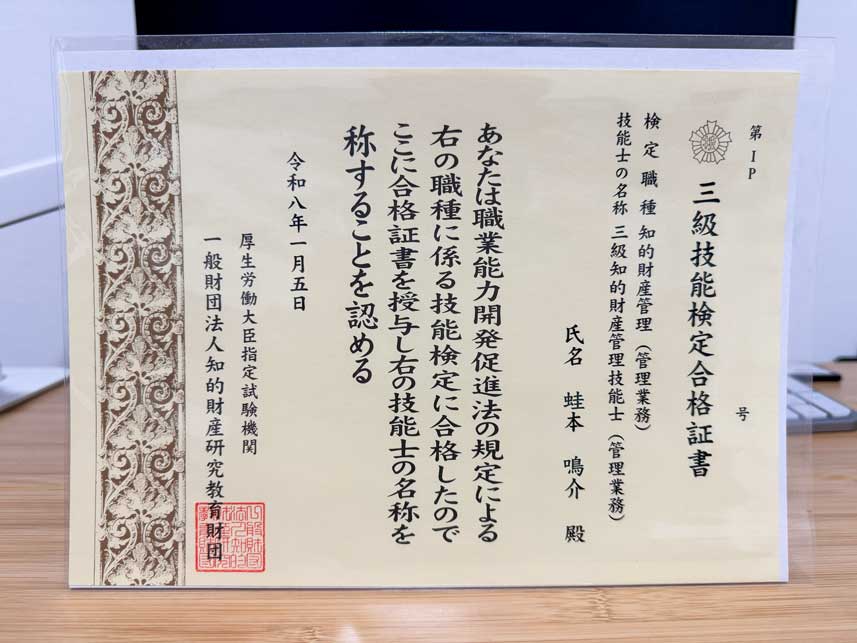 第IP 号
三級技能検定合格証書
検定職種 知的財産管理（管理業務）
技能士の名称 三級知的財産管理技能士（管理業務）
氏名 蛙本 鳴介 殿
あなたは職業能力開発促進法の規定による
右の職種に係る技能検定に合格したので
ここに合格証書を授与し右の技能士の名称を
称することを認める
令和八年一月五日
厚生労働大臣指定試験機関
一般財団法人知的財産研究教育財団